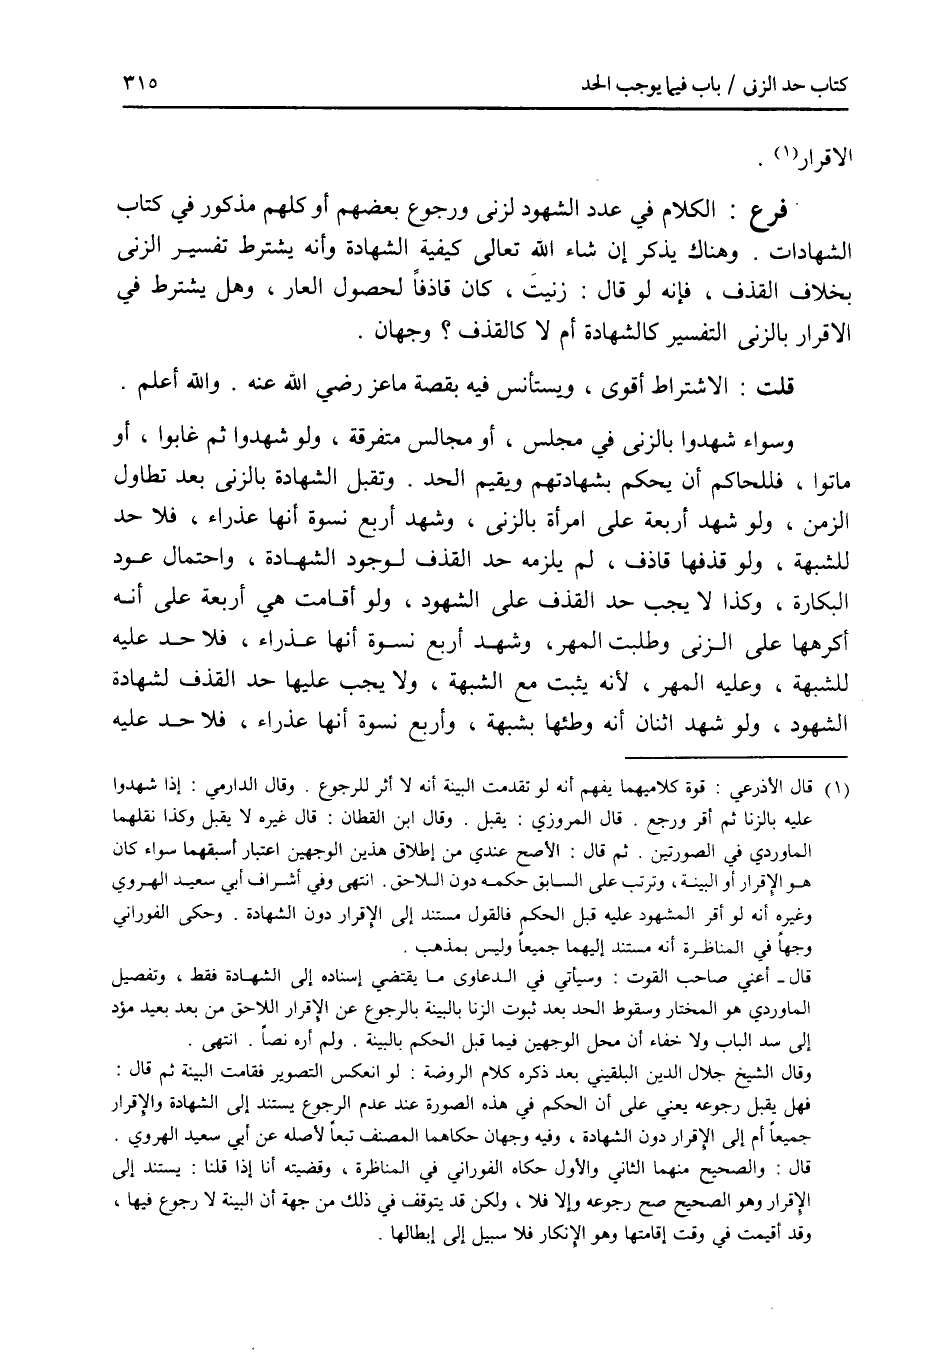 كتاب حد الزنى / باب فيما يوجب الحد ٣١٥
الاقرار(١) .
فرع : الكلام في عدد الشهود لزنى ورجوع بعضهم أو كلهم مذكور في كتاب
الشهادات . وهناك يذكر إن شاء الله تعالى كيفية الشهادة وأنه يشترط تفسير الزنى
بخلاف القذف ، فإنه لو قال : زنيتَ ، كان قاذفاً لحصول العار ، وهل يشترط في
الاقرار بالزنى التفسير كالشهادة أم لا كالقذف ؟ وجهان .
قلت : الاشتراط أقوى ، ويستأنس فيه بقصة ماعز رضي الله عنه . والله أعلم .
وسواء شهدوا بالزنى في مجلس ، أو مجالس متفرقة ، ولو شهدوا ثم غابوا ، أو
ماتوا ، فللحاكم أن يحكم بشهادتهم ويقيم الحد . وتقبل الشهادة بالزنى بعد تطاول
الزمن ، ولو شهد أربعة على امرأة بالزنى ، وشهد أربع نسوة أنها عذراء ، فلا حد
للشبهة ، ولو قذفها قاذف ، لم يلزمه حد القذف لوجود الشهادة ، واحتمال عود
البكارة ، وكذا لا يجب حد القذف على الشهود ، ولو أقامت هي أربعة على أنه
أكرهها على الزنى وطلبت المهر، وشهد أربع نسوة أنها عذراء ، فلا حد عليه
للشبهة ، وعليه المهر ، لأنه يثبت مع الشبهة ، ولا يجب عليها حد القذف لشهادة
الشهود ، ولو شهد اثنان أنه وطئها بشبهة ، وأربع نسوة أنها عذراء ، فلا حد عليه
(١) قال الأذرعي : قوة كلاميهما يفهم أنه لو تقدمت البينة أنه لا أثر للرجوع . وقال الدارمي : إذا شهدوا
عليه بالزنا ثم أقر ورجع . قال المروزي : يقبل . وقال ابن القطان : قال غيره لا يقبل وكذا نقلهما
الماوردي في الصورتين . ثم قال : الأصح عندي من إطلاق هذين الوجهين اعتبار أسبقهما سواء كان
هو الإقرار أو البينة، وترتب على السابق حكمه دون اللاحق. انتهى وفي أشراف أبي سعيد الهروي
وغيره أنه لو أقر المشهود عليه قبل الحكم فالقول مستند إلى الإقرار دون الشهادة . وحكى الفوراني
وجهاً في المناظرة أنه مستند إليهما جميعاً وليس بمذهب .
قال ـ أعني صاحب القوت : وسيأتي في الدعاوى ما يقتضي إسناده إلى الشهادة فقط ، وتفصيل
الماوردي هو المختار وسقوط الحد بعد ثبوت الزنا بالبينة بالرجوع عن الإقرار اللاحق من بعد بعيد مؤد
إلى سد الباب ولا خفاء أن محل الوجهين فيما قبل الحكم بالبينة . ولم أره نصاً . انتهى .
وقال الشيخ جلال الدين البلقيني بعد ذكره كلام الروضة : لو انعكس التصوير فقامت البينة ثم قال :
فهل يقبل رجوعه يعني على أن الحكم في هذه الصورة عند عدم الرجوع يستند إلى الشهادة والإقرار
جميعاً أم إلى الإقرار دون الشهادة ، وفيه وجهان حكاهما المصنف تبعاً لأصله عن أبي سعيد الهروي .
قال : والصحيح منهما الثاني والأول حكاه الفوراني في المناظرة ، وقضيته أنا إذا قلنا : يستند إلى
الإقرار وهو الصحيح صح رجوعه وإلا فلا ، ولكن قد يتوقف في ذلك من جهة أن البينة لا رجوع فيها ،
وقد أقيمت في وقت إقامتها وهو الإنكار فلا سبيل إلى إبطالها .